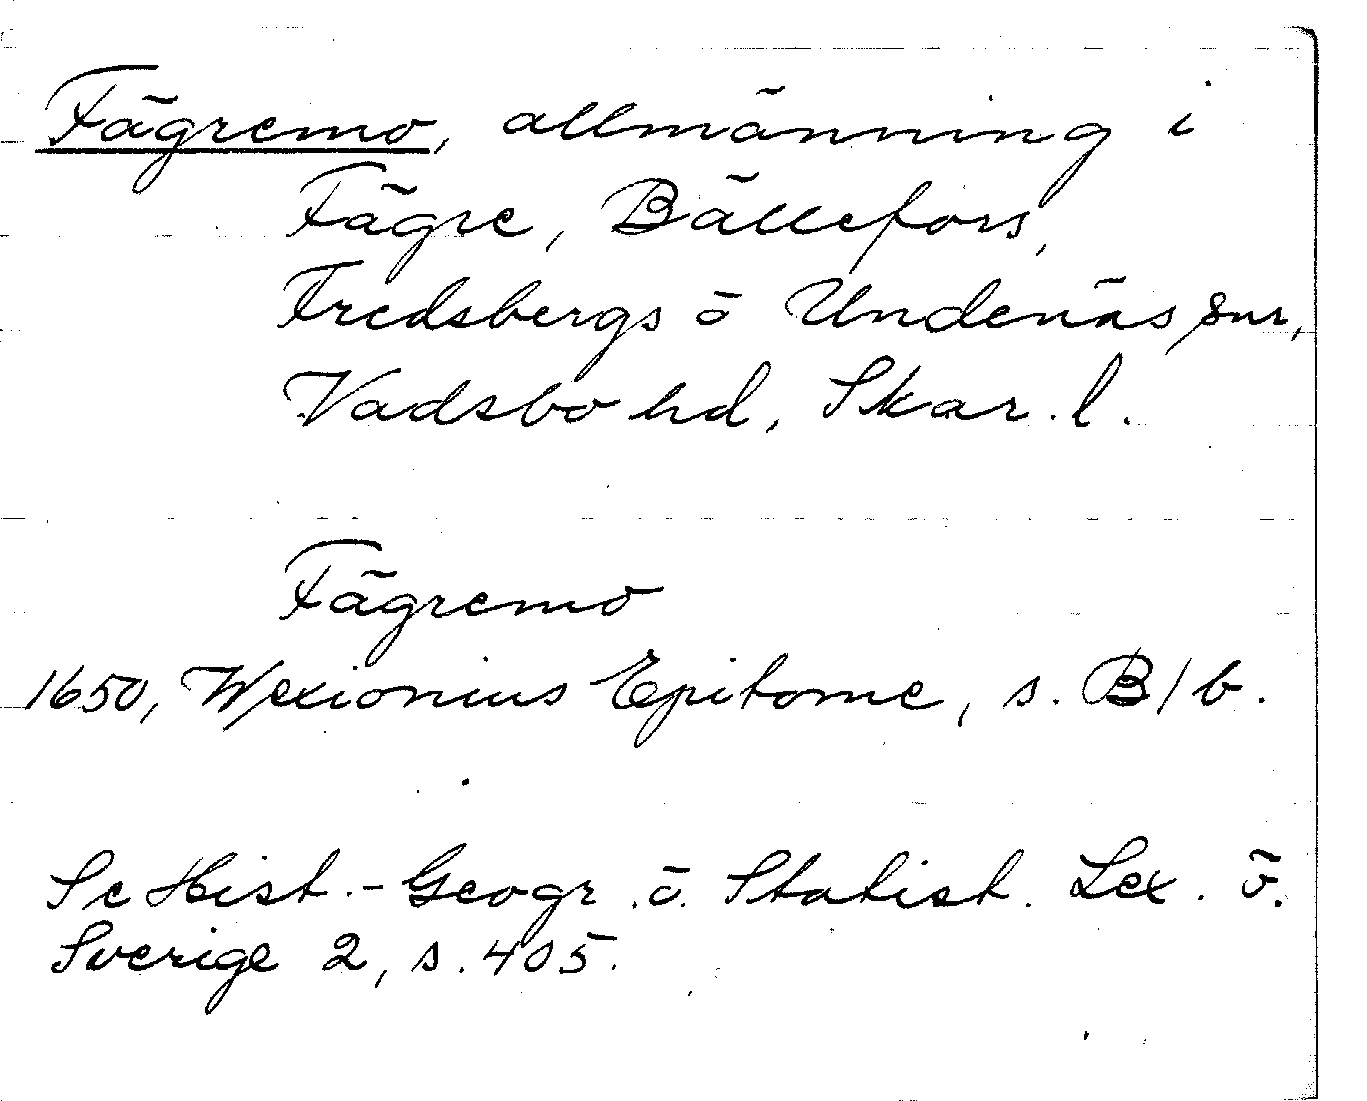 Fägremo, allmänning i
Fägre, Bällefors,
Fredsbergs o Undenäs snr,
Vadsbo hd, Skar. l.
Fägremo
1650, Wexionius Epitome, s. B/b.
Se Hist.-Geogr. o. Statist. Lex. ö.
Sverige 2, s. 405.